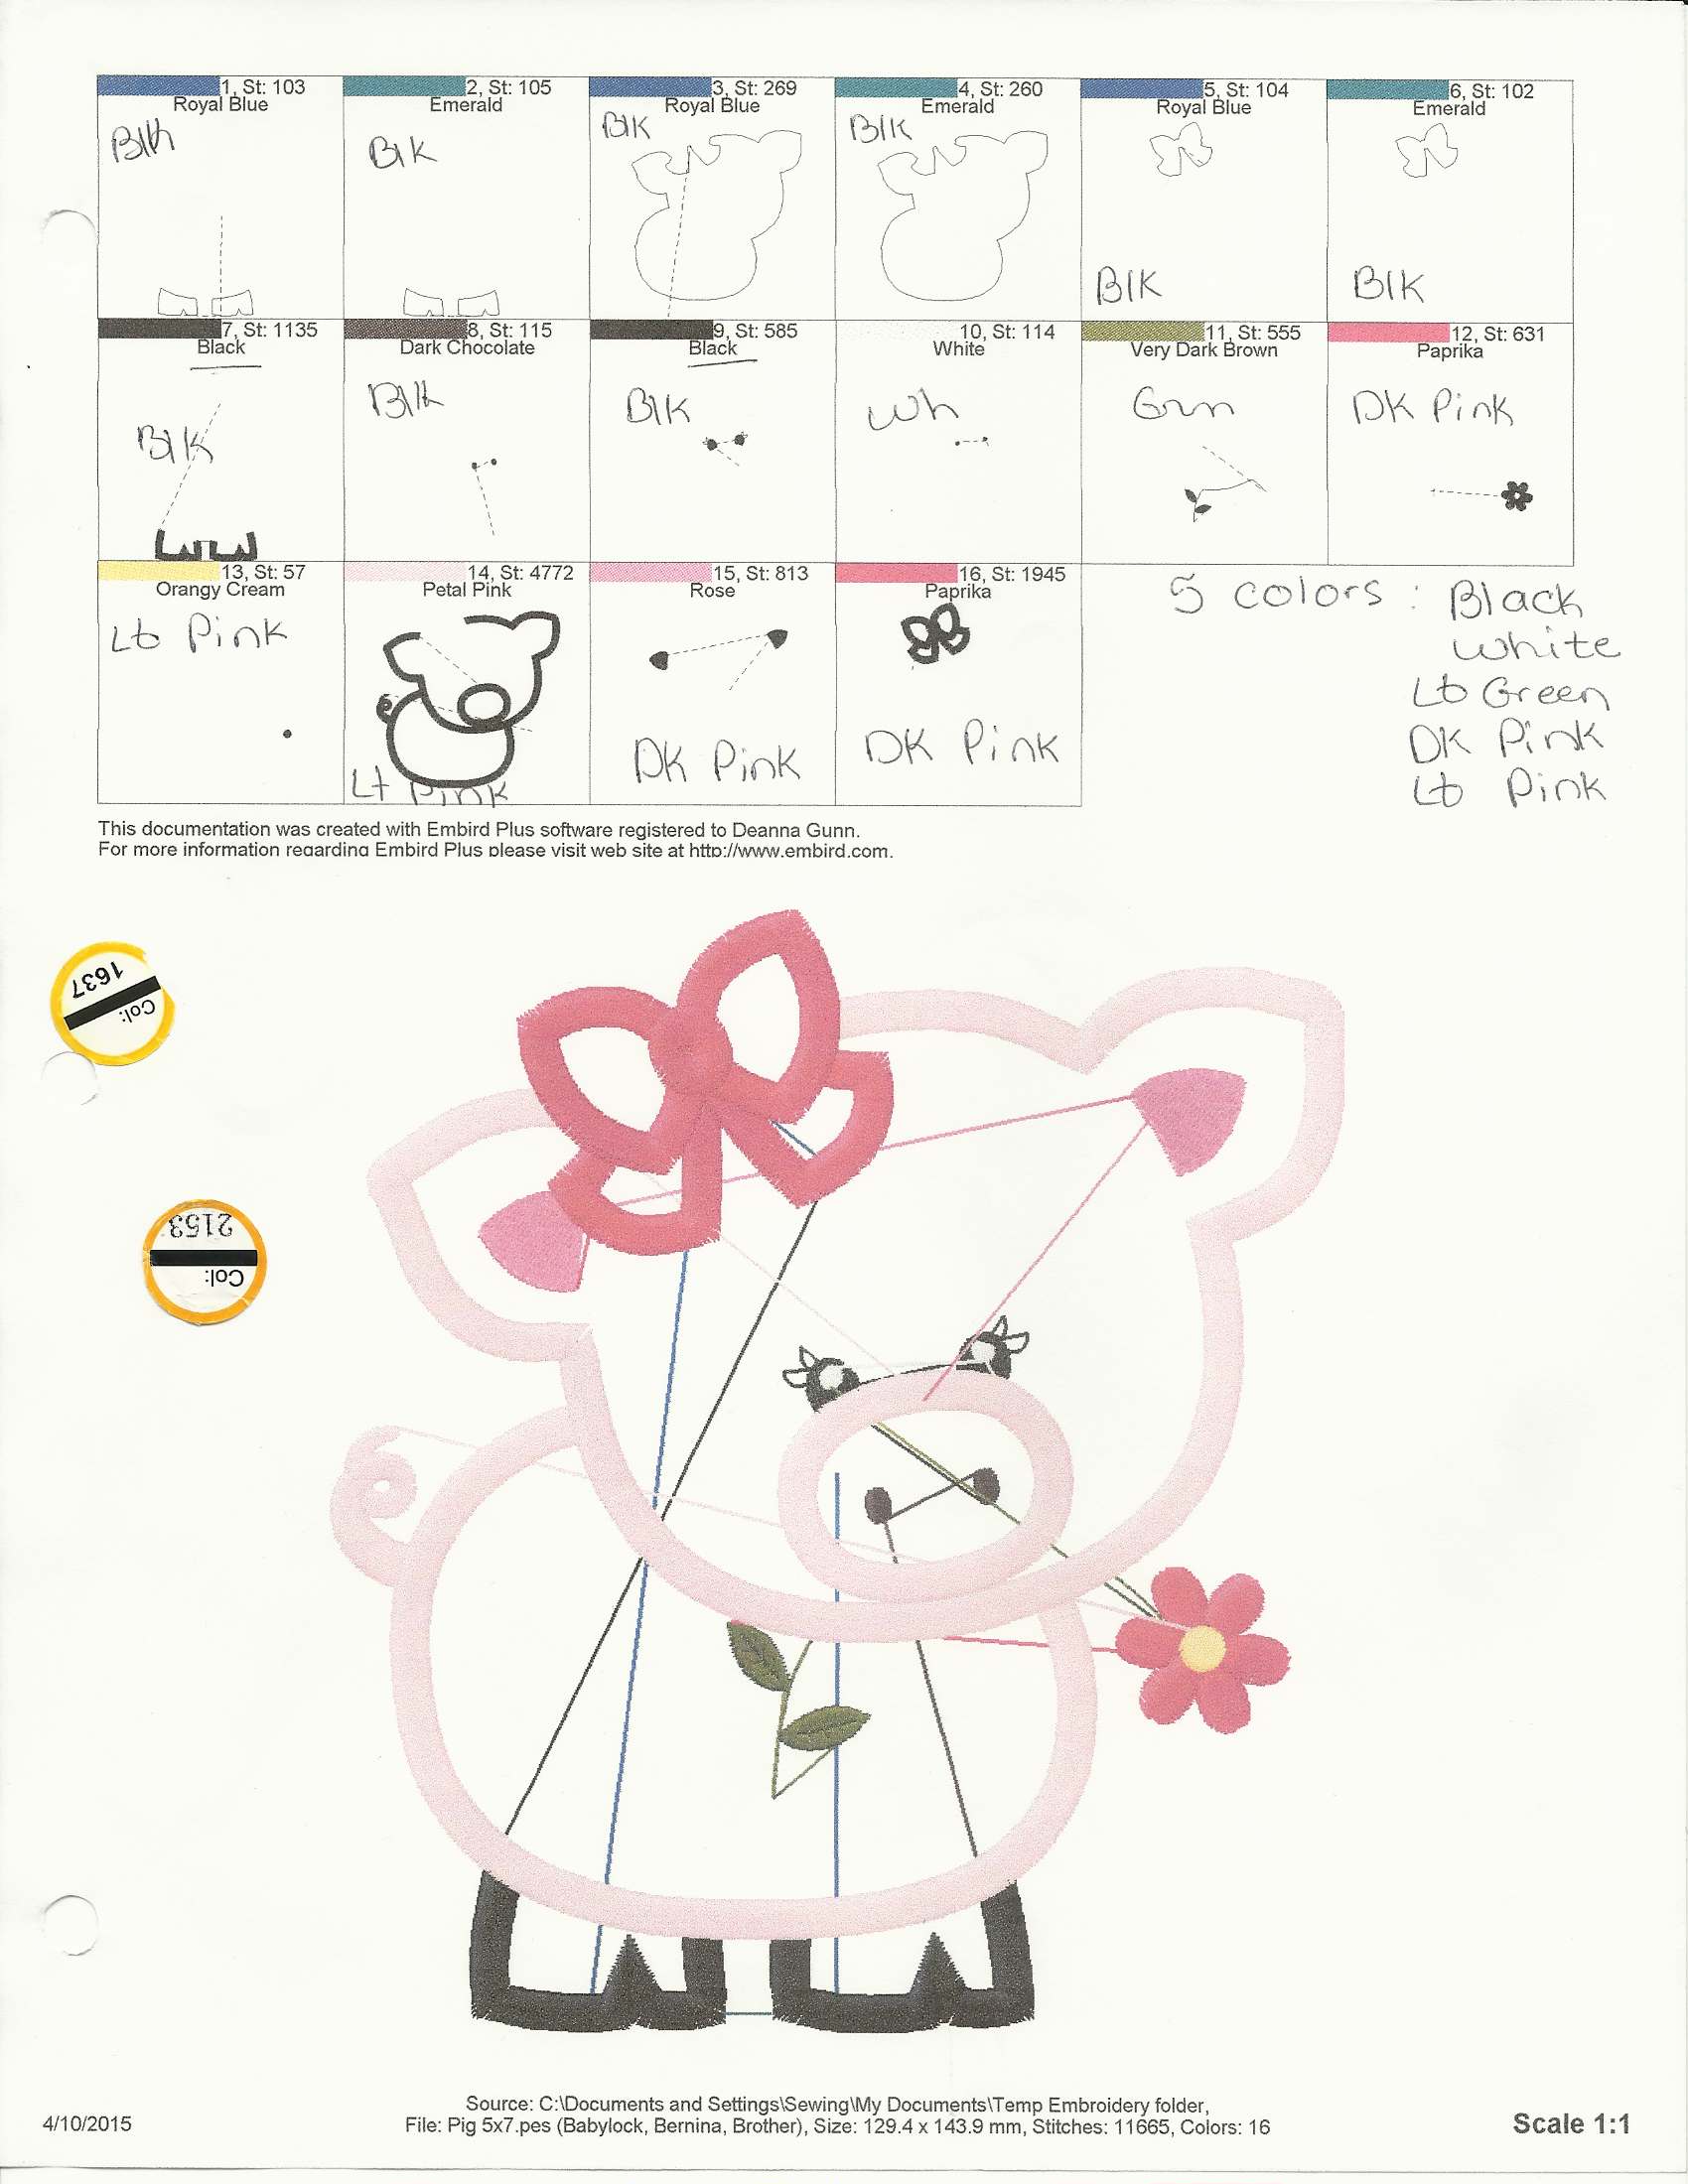 1, St: 103
Royal Blue
Blk
2, St: 105
Emerald
Blk
3, St: 269
Royal Blue
Blk
4, St: 260
Emerald
Blk
5, St: 104
Royal Blue
Blk
6, St: 102
Emerald
Blk
7, St: 1135
Black
Blk
8, St: 115
Dark Chocolate
Blk
9, St: 585
Black
Blk
10, St: 114
White
Wh
11, St: 555
Very Dark Brown
Grn
12, St: 631
Paprika
DK Pink
13, St: 57
Orangy Cream
Lt Pink
14, St: 4772
Petal Pink
Lt Pink
15, St: 813
Rose
DK Pink
16, St: 1945
Paprika
DK Pink
5 colors : Black
White
Lt Green
DK Pink
Lt Pink
This documentation was created with Embird Plus software registered to Deanna Gunn.
For more information regarding Embird Plus please visit web site at http://www.embird.com.
Col:
1637
Col:
2153
Source: C:\Documents and Settings\Sewing\My Documents\Temp Embroidery folder,
File: Pig 5x7.pes (Babylock, Bernina, Brother), Size: 129.4 x 143.9 mm, Stitches: 11665, Colors: 16
4/10/2015
Scale 1:1